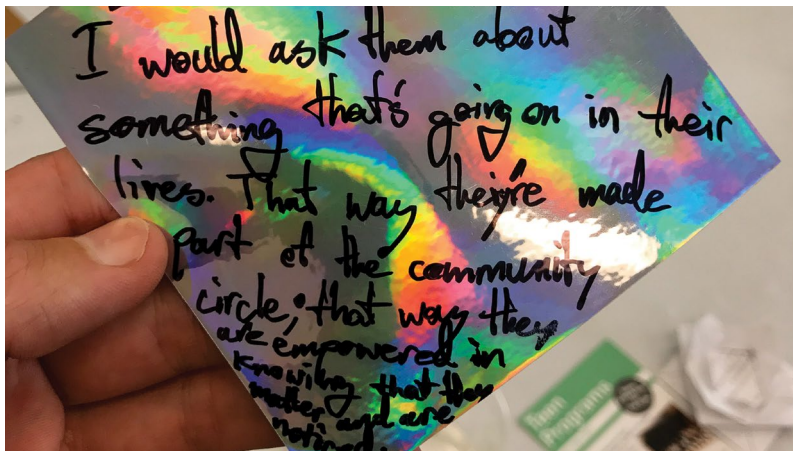 I would ask them about
something that's going on in their
lives. That way they're made
part of the community
circle; that way they
are empowered in
knowing that they
matter and are
noticed.
Teen
Programs